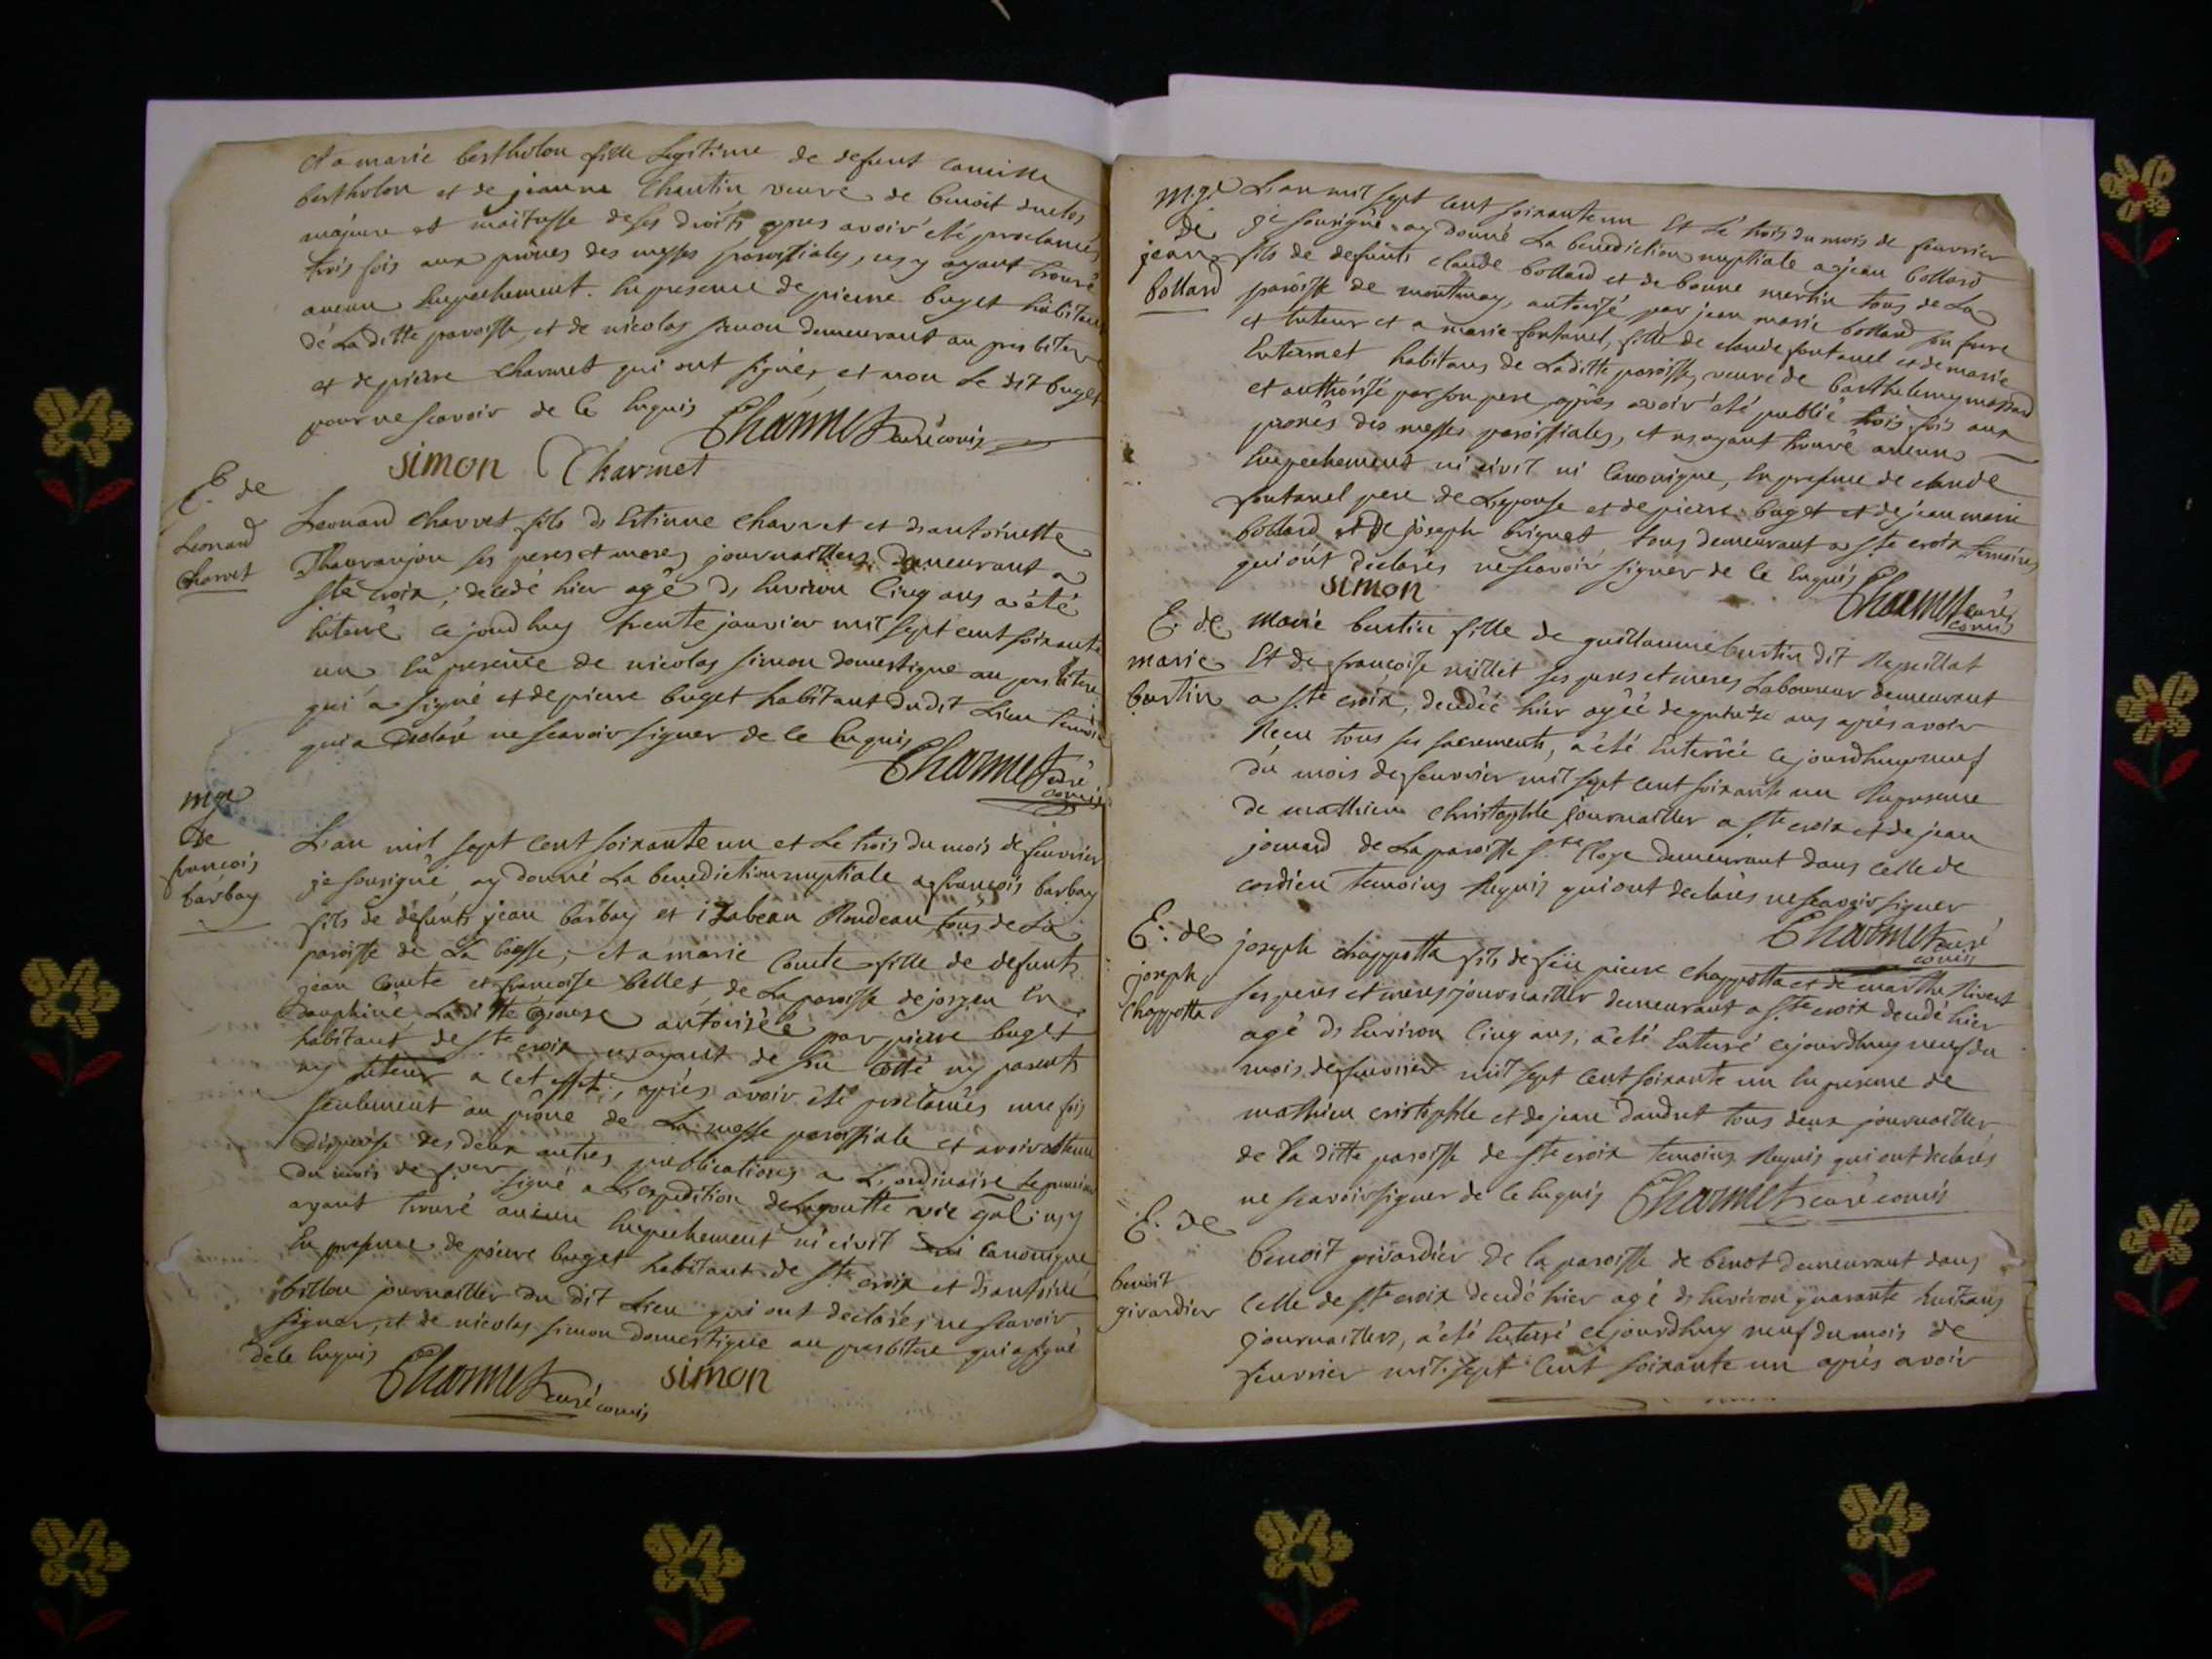 et a marie bertholon fille legitime de defunt camille
bertholon et de jeanne Chantin veuve de benoit duclos
majeure et maitresse de ses droits apres avoir été proclamés
trois fois aux prônes des messes paroissiales, n'y ayant trouvé
aucun Empechement. En presence de pierre buget habitant
de La ditte paroisse, et de nicolas simon demeurant au presbitere
et de pierre Charmet qui ont signés, et non Le dit buget
pour ne scavoir de ce Enquis Charmet curé comis
simon Charmet
E. de
Leonard
Charvet
Leonard Charvet fils d'Estienne Charvet et d'antoinette
ses peres et meres journailliers Demeurant a
ste croix, decedé hier agé d'Environ Cinq ans a été
Enterré ce jourdhuy trente janvier mil sept cent soixante
un En presence de nicolas simon domestique au presbitere
qui a signé et de pierre buget habitant du dit Lieu temoin
qui a Declaré ne scavoir signer de ce Enquis
Charmet curé
comis
mge
de
francois
barbay
L'an mil sept cent soixante un et Le trois du mois de feuvrier
je sousigné, ay donné La benediction nuptiale a francois barbay
fils de defunts jean barbay et izabeau Rondeau tous de La
paroisse de La boisse, et a marie Comte fille de defunts
jean Comte et francoise belles de La paroisse de en
Dauphiné La ditte Epouse autorisée par pierre buget
habitant de ste croix n'ayant de son Cotté ny parents
ny tuteur a cet effet, apres avoir été proclamés une fois
seulement au prône de La messe paroissiale et avoir obtenu
Dispense des deux autres publications a L'ordinaire Le premier
Du mois de fver signé a L'expedition delagoutte vic gal: n'y
ayant trouvé aucun Empechement ni civil ni Canonique
En presence de pierre buget habitant de ste croix et d'antoine
billon journaillier Du dit Lieu qui ont declarés ne scavoir
signer, et de nicolas simon domestique au presbitere qui a signé
de ce Enquis Charmet curé comis simon
m.ge
de
jean
bollard
L'an mil sept cent soixante un Et Le trois du mois de feuvrier
je sousigné ay donné La benediction nuptiale a jean bollard
fils de defunts claude bollard et de bonne merlin tous de La
paroisse de montluay, autorisé par jean marie bollard son frere
et tuteur et a marie fontanel, fille de claude fontanel et de marie
habitans de La ditte paroisse, veuve de barthelemy massard
et authorisé par son pere, aprés avoir été publié trois fois aux
prones des messes paroissiales, et n'y ayant trouvé aucun
Empechement ni civil ni Canonique, En presence de claude
fontanel pere de L'epouse et de pierre buget et de jean marie
bollard et de joseph briquet tous demeurant a ste croix temoins
qui ont Declarés ne scavoir signer de ce Enquis
simon Charmet curé
comis
E. de
marie
burtin
Marie burtin fille de guillaume burtin dit
Et de francoise millet ses peres et meres Laboureur demeurant
a ste croix, decedée hier agée de quinze ans aprés avoir
Recu tous ses sacrements, a été Enterrée ce jourdhuy neuf
du mois de feuvrier mil sept cent soixante un En presence
de mathieu Christophle journaillier a ste croix et de jean
jomard de La paroisse ste Eloge demeurant dans celle de
cordieu temoins Requis qui ont declarés ne scavoir signer
Charmet curé
comis
E: de
joseph
Chappotta
joseph Chappotta fils de feü pierre Chappotta et de marthe Rivert
ses peres et meres journaillier demeurant a ste croix decedé hier
agé d'Environ Cinq ans, a été Enterré cejourdhuy neuf du
mois de feuvrier mil sept cent soixante un En presence de
mathieu cristophle et de jean dandret tous deux journaillier
de La ditte paroisse de ste croix temoins Requis qui ont declarés
ne scavoir signer de ce Enquis Charmet curé comis
E. de
benoit
girardier
benoit girardier de la paroisse de benot demeurant dans
Celle de ste croix decedé hier agé d'Environ quarante huit ans
journaillier, a été Enterré cejourdhuy neuf du mois de
feuvrier mil sept Cent soixante un aprés avoir